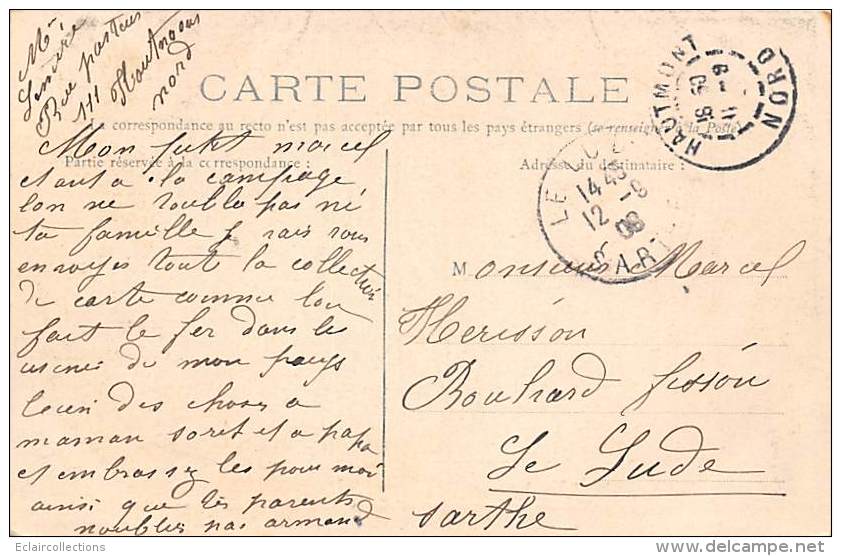 Mr
Lemaire
Rue pasteur
111 Hautmont
nord
CARTE POSTALE
La correspondance au recto n'est pas acceptée par tous les pays étrangers (se renseigner à la Poste)
Mon petit marcel
Partie réservée à la correspondance :
Adresse du destinataire :
et aut a la campage
lon ne toublo pas ni
ta famille j vais vous
envoyes tout la collection
de carte comme lon
fait le fer dans les
usines de mon pays
bien des choses a
maman soret et a papa
et embrassez les pour moi
ainsi que tes parents
noublies pas armand
HAUTMONT
NORD
11 -9
05
LE LUDE
14 45
12 -9
05
SARTHE
Monsieur Marcel
Herisson
Boulvard fisson
Le Lude
Sarthe
Eclaircollections
delcampe.net